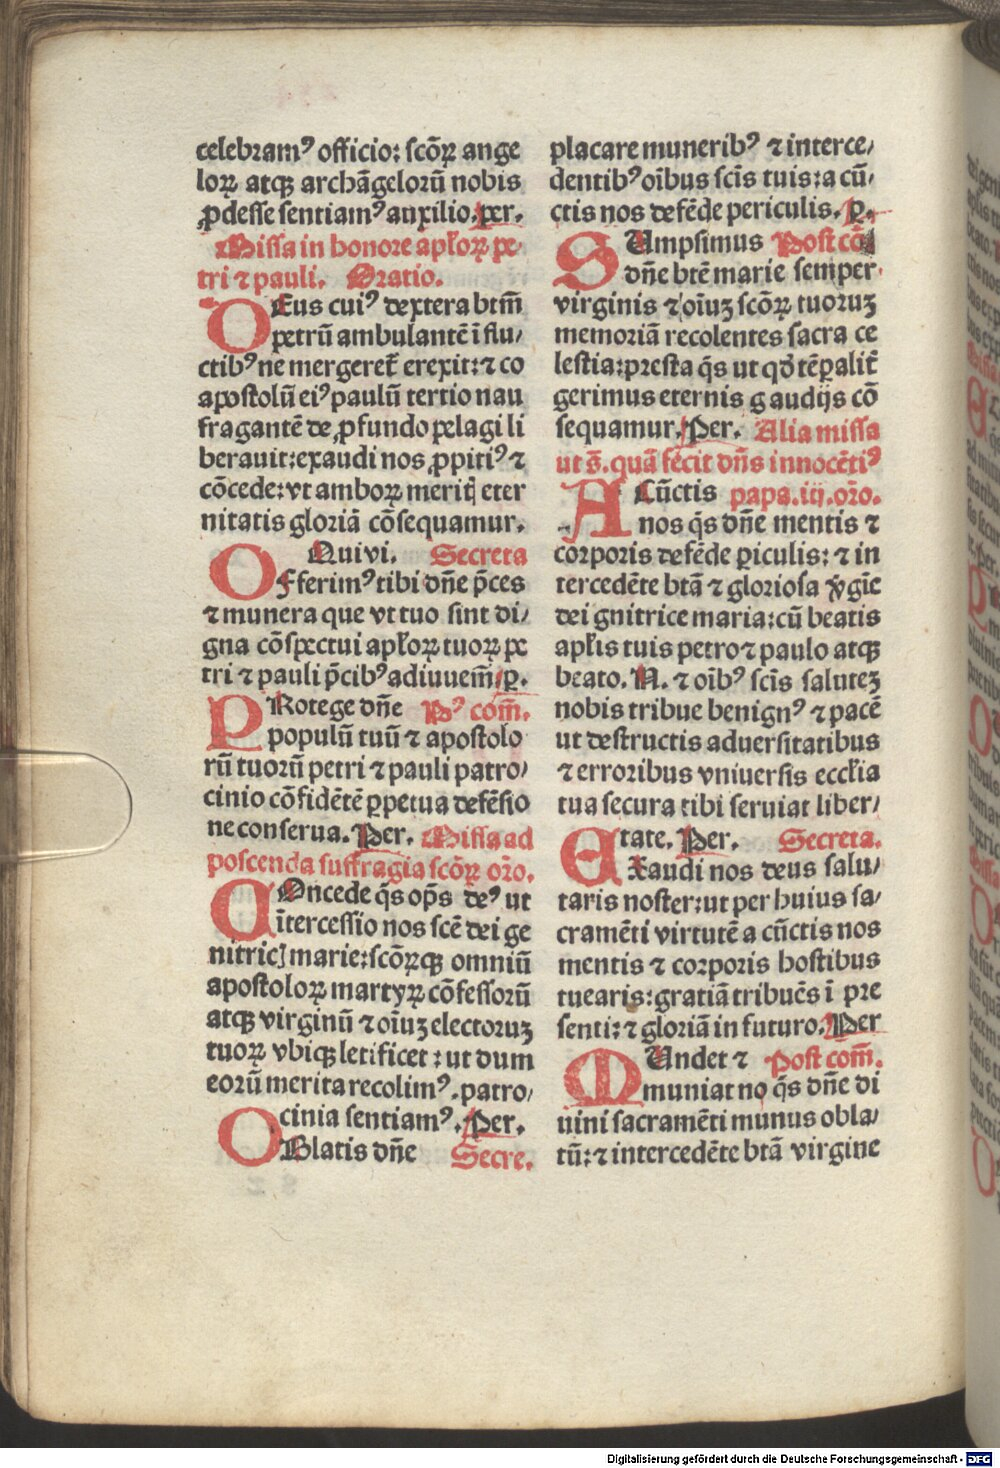 celebramꝰ officio: scõꝝ ange
loꝝ atqꝫ archãgelorũ nobis
ꝓdesse sentiamꝰ auxilio. per.
Missa in honore apl'oꝝ pe
tri ⁊ pauli. Oratio.
DEus cuiꝰ dextera btm̃
petrũ ambulantẽ ĩ flu/
ctibꝰ ne mergeret̃ erexit: ⁊ co
apostolũ eiꝰ paulũ tertio nau
fragantẽ de ꝓfundo pelagi li
berauit: exaudi nos ꝓpitiꝰ ⁊
cõcede: vt amboꝝ meritꝭ eter
nitatis gloriã cõsequamur.
Qui vivi. Secreta
OFferimꝰ tibi dñe p̃ces
⁊ munera que vt tuo sint di/
gna cõspectui apl'oꝝ tuoꝝ pe
tri ⁊ pauli p̃cibꝰ adiuuem̃. ꝑ.
PRotege dñe Pꝰ com̃.
populũ tuũ ⁊ apostolo
rũ tuorũ petri ⁊ pauli patro/
cinio cõfidẽtẽ ꝑpetua defẽsio
ne conserua. Per. Missa ad
poscenda suffragia scõꝝ or̃o.
COncede q̃s op̃s deꝰ ut
ĩtercessio nos scẽ dei ge
nitricꝭ marie: scõꝝqꝫ omniũ
apostoloꝝ martyꝝ cõfessorũ
atqꝫ virginũ ⁊ oĩuꝫ electoruꝫ
tuoꝝ vbiqꝫ letificet: ut dum
eorũ merita recolimꝰ. patro/
cinia sentiamꝰ. Per.
OBlatis dñe Secre.
placare muneribꝰ ⁊ interce/
dentibꝰ oĩbus scĩs tuis: a cũ/
ctis nos defẽde periculis. ꝑ.
SUmpsimus Post cõ
dñe btẽ marie semper
virginis ⁊ oĩuꝫ scõꝝ tuoruꝫ
memoriã recolentes sacra ce
lestia: presta q̃s ut qd̃ tẽꝑalit̃
gerimus eternis gaudijs cõ
sequamur. Per. Alia missa
ut s̃. quã fecit dñs innocẽtiꝰ
papa. iij. or̃o.
A Cũctis
nos q̃s dñe mentis ⁊
corporis defẽde ꝑiculis: ⁊ in
tercedẽte btã ⁊ gloriosa v̾gĩe
dei gnitrice maria: cũ beatis
apl'is tuis petro ⁊ paulo atqꝫ
beato. N. ⁊ oĩbꝰ scĩs saluteꝫ
nobis tribue benignꝰ ⁊ pacẽ
ut destructis aduersitatibus
⁊ erroribus vniuersis eccl'ia
tua secura tibi seruiat liber/
tate. Per. Secreta.
EXaudi nos deus salu/
taris noster: ut per huius sa/
cramẽti virtutẽ a cũctis nos
mentis ⁊ corporis hostibus
tuearis: gratiã tribuẽs ĩ pre
senti: ⁊ gloriã in futuro. Per
MUndet ⁊ Post com̃.
muniat no q̃s dñe di
uini sacramẽti munus obla/
tũ: ⁊ intercedẽte btã virgine
Digitalisierung gefördert durch die Deutsche Forschungsgemeinschaft - DFG